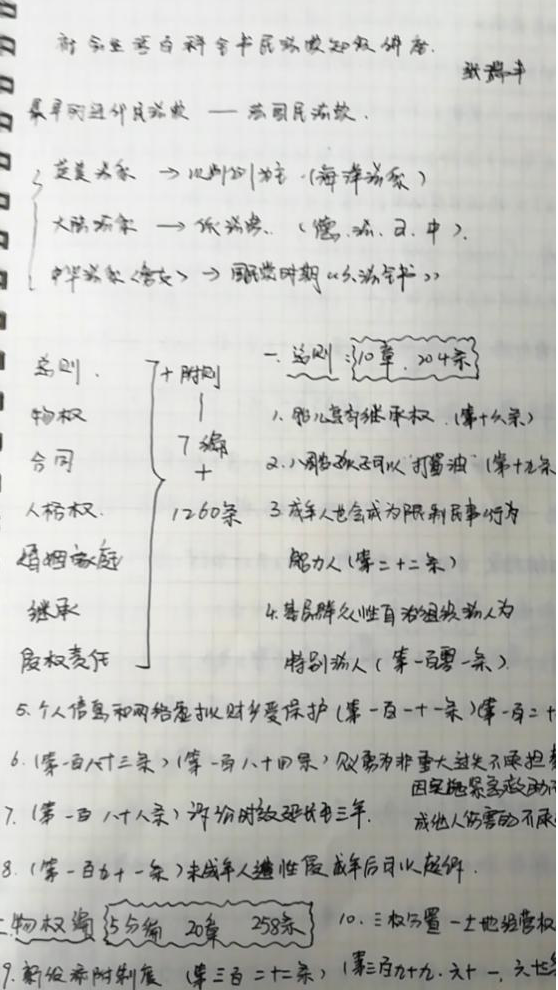 社会生活百科全书民法典知识讲座.
张瑞丰
最早的近代民法典 —— 法国民法典.
英美法系 → 以判例为主.(海洋法系)
大陆法系 → 依法典.(德.法.日.中).
中华法系<唐宋> → 国民党时期《六法全书》
总则.
物权
合同
人格权.
婚姻家庭
继承
侵权责任
+附则
7编
+
1260条
一.总则:10章.204条
1.胎儿享有继承权.(第十六条)
2.八周岁孩子可以"打酱油"(第十九条
3.成年人也会成为限制民事行为
能力人(第二十二条)
4.基层群众性自治组织法人为
特别法人(第一百零一条).
5.个人信息和网络虚拟财产受保护(第一百一十一条)(第一百二十
6.(第一百八十三条)(第一百八十四条)见义勇为非重大过失不承担责
因实施紧急救助而
成他人伤害的不承
7.(第一百八十八条)诉讼时效延长至三年.
8.(第一百九十一条)未成年人遭性侵成年后可以起诉.
二.物权编 5分编 20章 258条
10.三权分置—土地经营权
9.新增添附制度(第三百二十二条)(第三百九十九.六十一.六七条